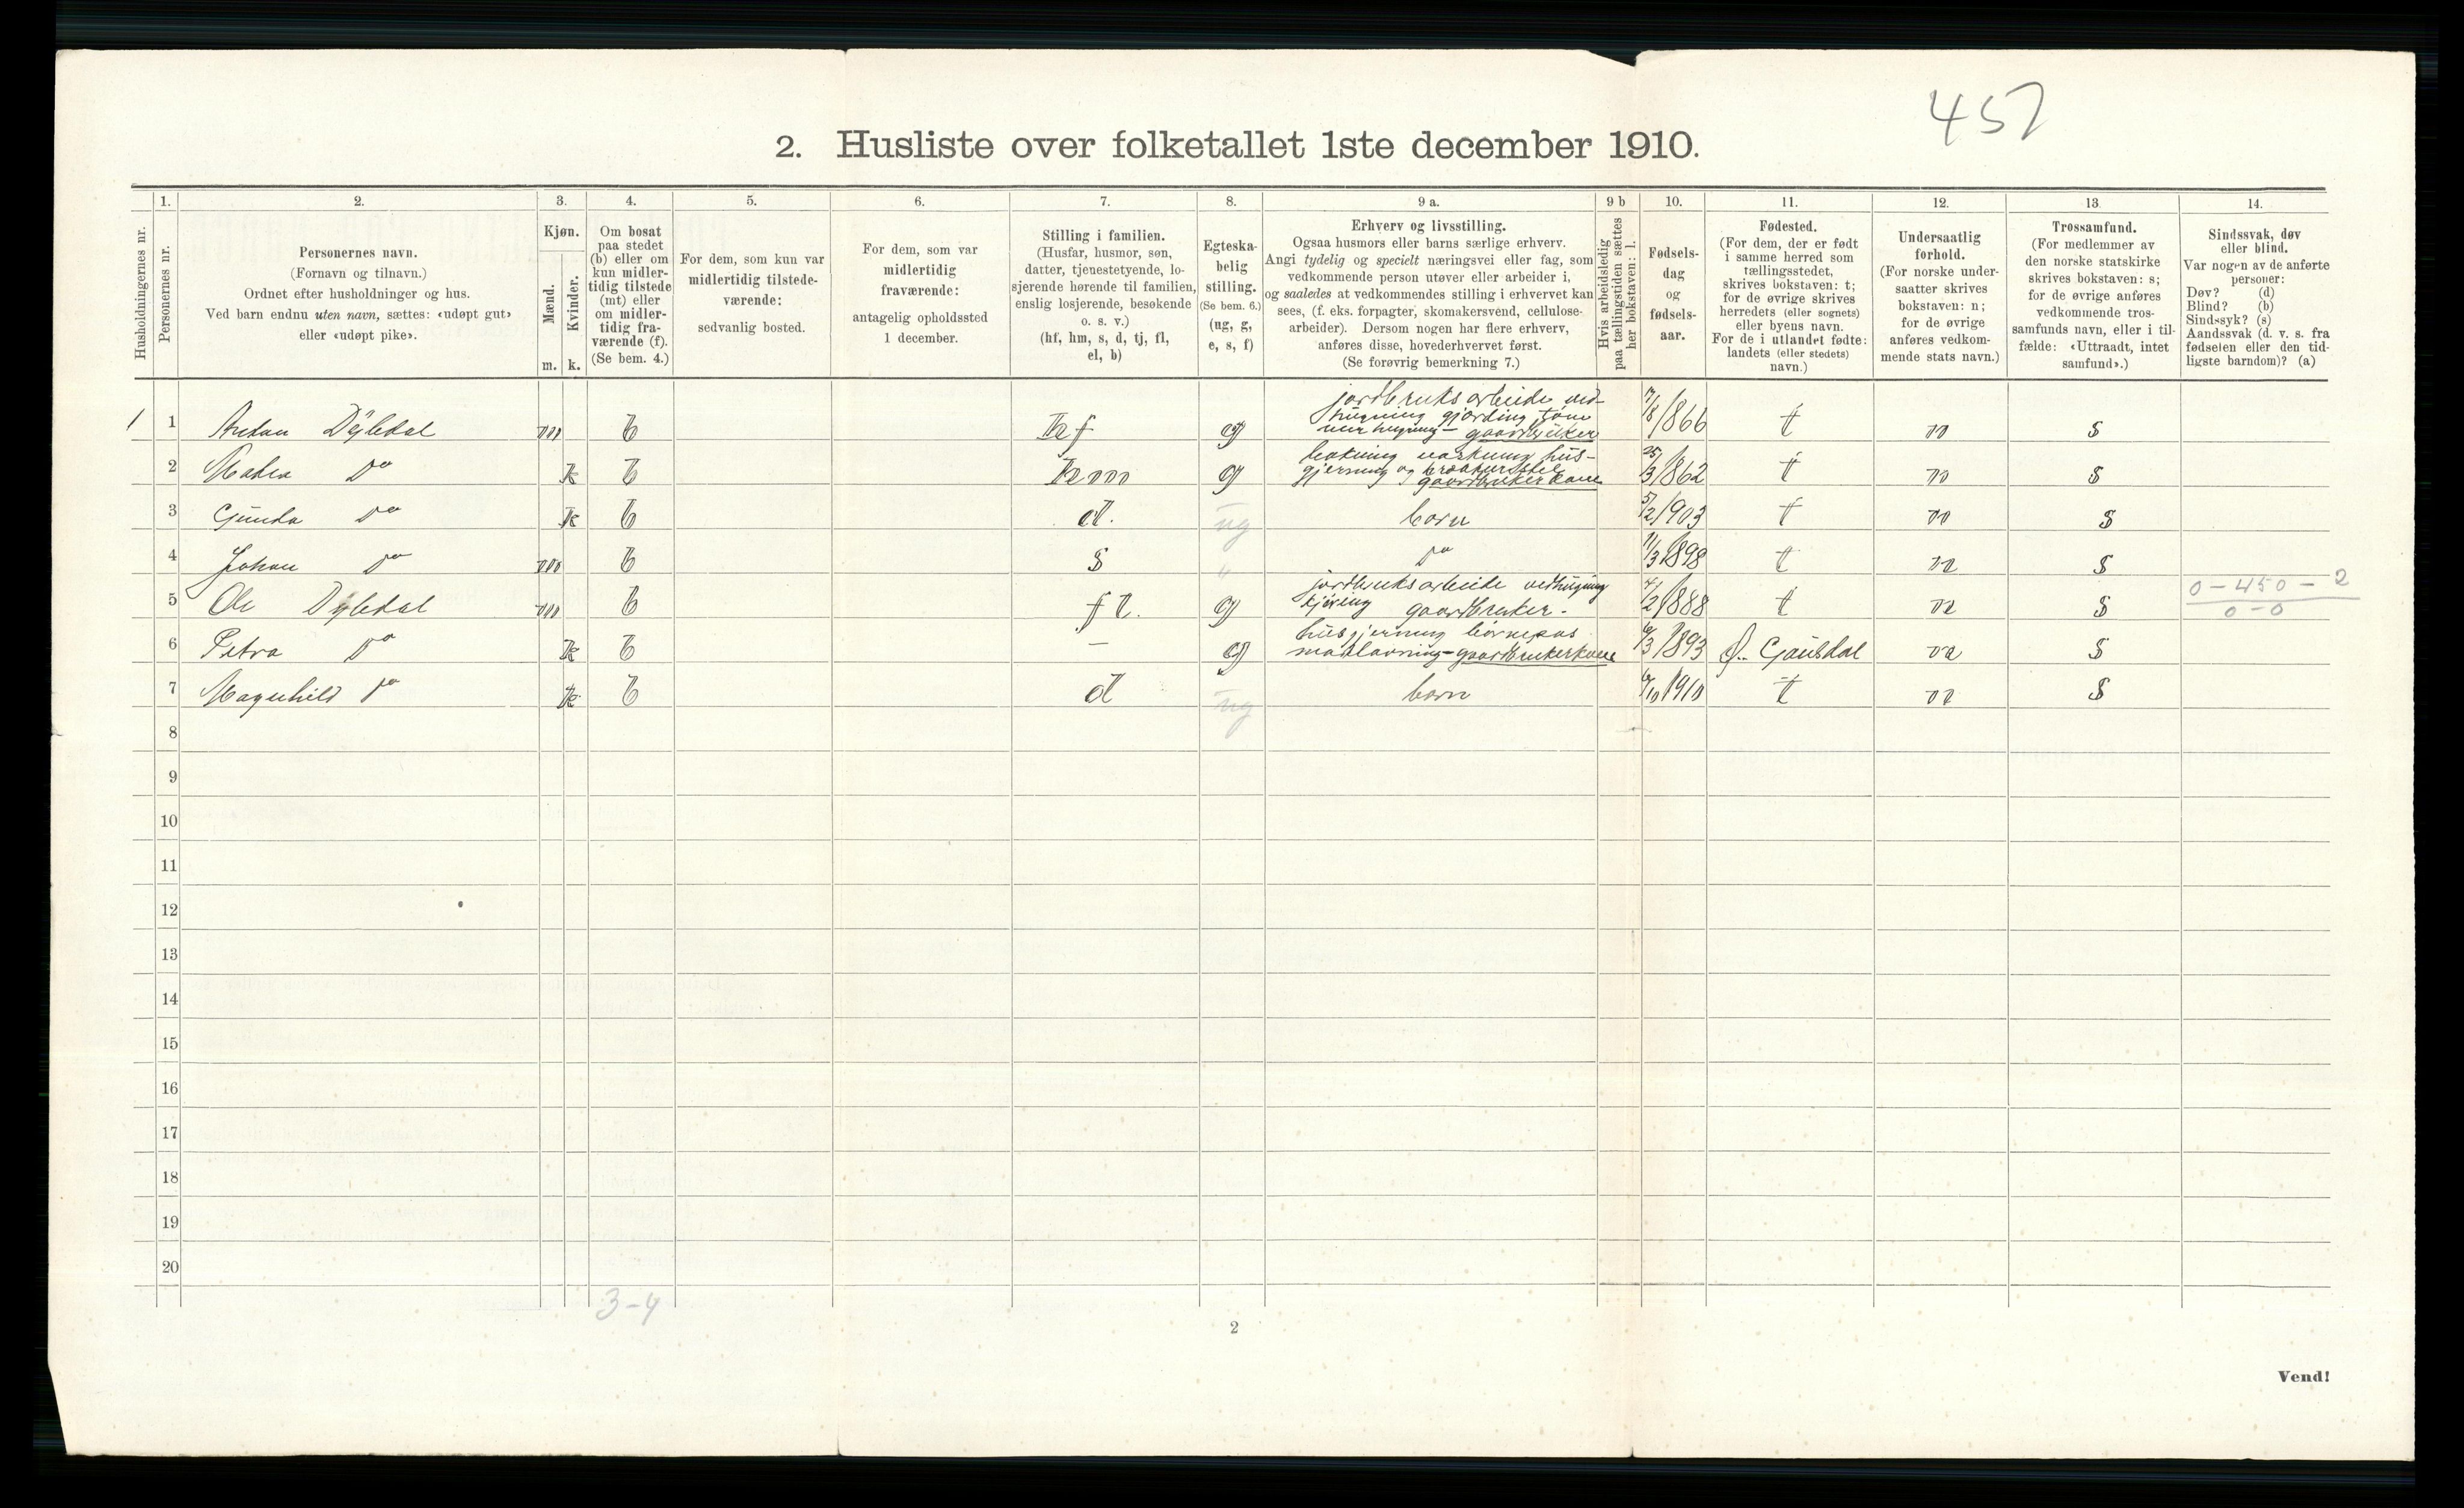 457
2. Husliste over folketallet 1ste december 1910.
Husholdningernes nr.
1.
Personernes nr.
2.
Personernes navn.
(Fornavn og tilnavn.)
Ordnet efter husholdninger og hus.
Ved barn endnu uten navn, sættes: «udøpt gut»
eller «udøpt pike».
3.
Kjøn.
Mænd.
Kvinder.
m. k.
4.
Om bosat
paa stedet
(b) eller om
kun midler-
tidig tilstede
(mt) eller
om midler-
tidig fra-
værende (f).
(Se bem. 4.)
5.
For dem, som kun var
midlertidig tilstede-
værende:
sedvanlig bosted.
6.
For dem, som var
midlertidig
fraværende:
antagelig opholdssted
1 december.
7.
Stilling i familien.
(Husfar, husmor, søn,
datter, tjenestetyende, lo-
sjerende hørende til familien,
enslig losjerende, besøkende
o. s. v.)
(hf, hm, s, d, tj, fl,
el, b)
8.
Egteska-
belig
stilling.
(Se bem. 6.)
(ug, g,
e, s, f)
9 a.
Erhverv og livsstilling.
Ogsaa husmors eller barns særlige erhverv.
Angi tydelig og specielt næringsvei eller fag, som
vedkommende person utøver eller arbeider i,
og saaledes at vedkommendes stilling i erhvervet kan
sees, (f. eks. forpagter, skomakersvend, cellulose-
arbeider). Dersom nogen har flere erhverv,
anføres disse, hovederhvervet først.
(Se forøvrig bemerkning 7.)
9 b
Hvis arbeidsledig
paa tællingstiden sættes
her bokstaven: l.
10.
Fødsels-
dag
og
fødsels-
aar.
11.
Fødested.
(For dem, der er født
i samme herred som
tællingsstedet,
skrives bokstaven: t;
for de øvrige skrives
herredets (eller sognets)
eller byens navn.
For de i utlandet fødte:
landets (eller stedets)
navn.)
12.
Undersaatlig
forhold.
(For norske under-
saatter skrives
bokstaven: n;
for de øvrige
anføres vedkom-
mende stats navn.)
13.
Trossamfund.
(For medlemmer av
den norske statskirke
skrives bokstaven: s;
for de øvrige anføres
vedkommende tros-
samfunds navn, eller i til-
fælde: «Uttraadt, intet
samfund».)
14.
Sindssvak, døv
eller blind.
Var nogen av de anførte
personer:
Døv? (d)
Blind? (b)
Sindssyk? (s)
Aandssvak (d. v. s. fra
fødselen eller den tid-
ligste barndom)? (a)
1 1 Anton m b hf g jordbruksarbeide ved-
hugning gjærding
hugning - gaardbruker /8 1866 t n s
2 Do k b hm g vaskning hus-
gjerning og
gaardbrukerkone /3 1862 t n s
3 Gunda Do k b d. ug barn 5/2 1903 t n s
4 Johan Do m b s " Do 11/3 1898 t n s
5 Ole m b fl. g jordbruksarbeide vedhugning
kjøring gaardbruker - /2 1888 t n s 0-450-2
0-0
6 Petra Do k b - g husgjerning børnepas
madlavning - gaardbrukerkone /3 1893 Ø. Gausdal n s
7 Magnhild Do k b d ug barn 6/10 1910 t n s
8
9
10
11
12
13
14
15
16
17
18
19
20
3-4
2
Vend!